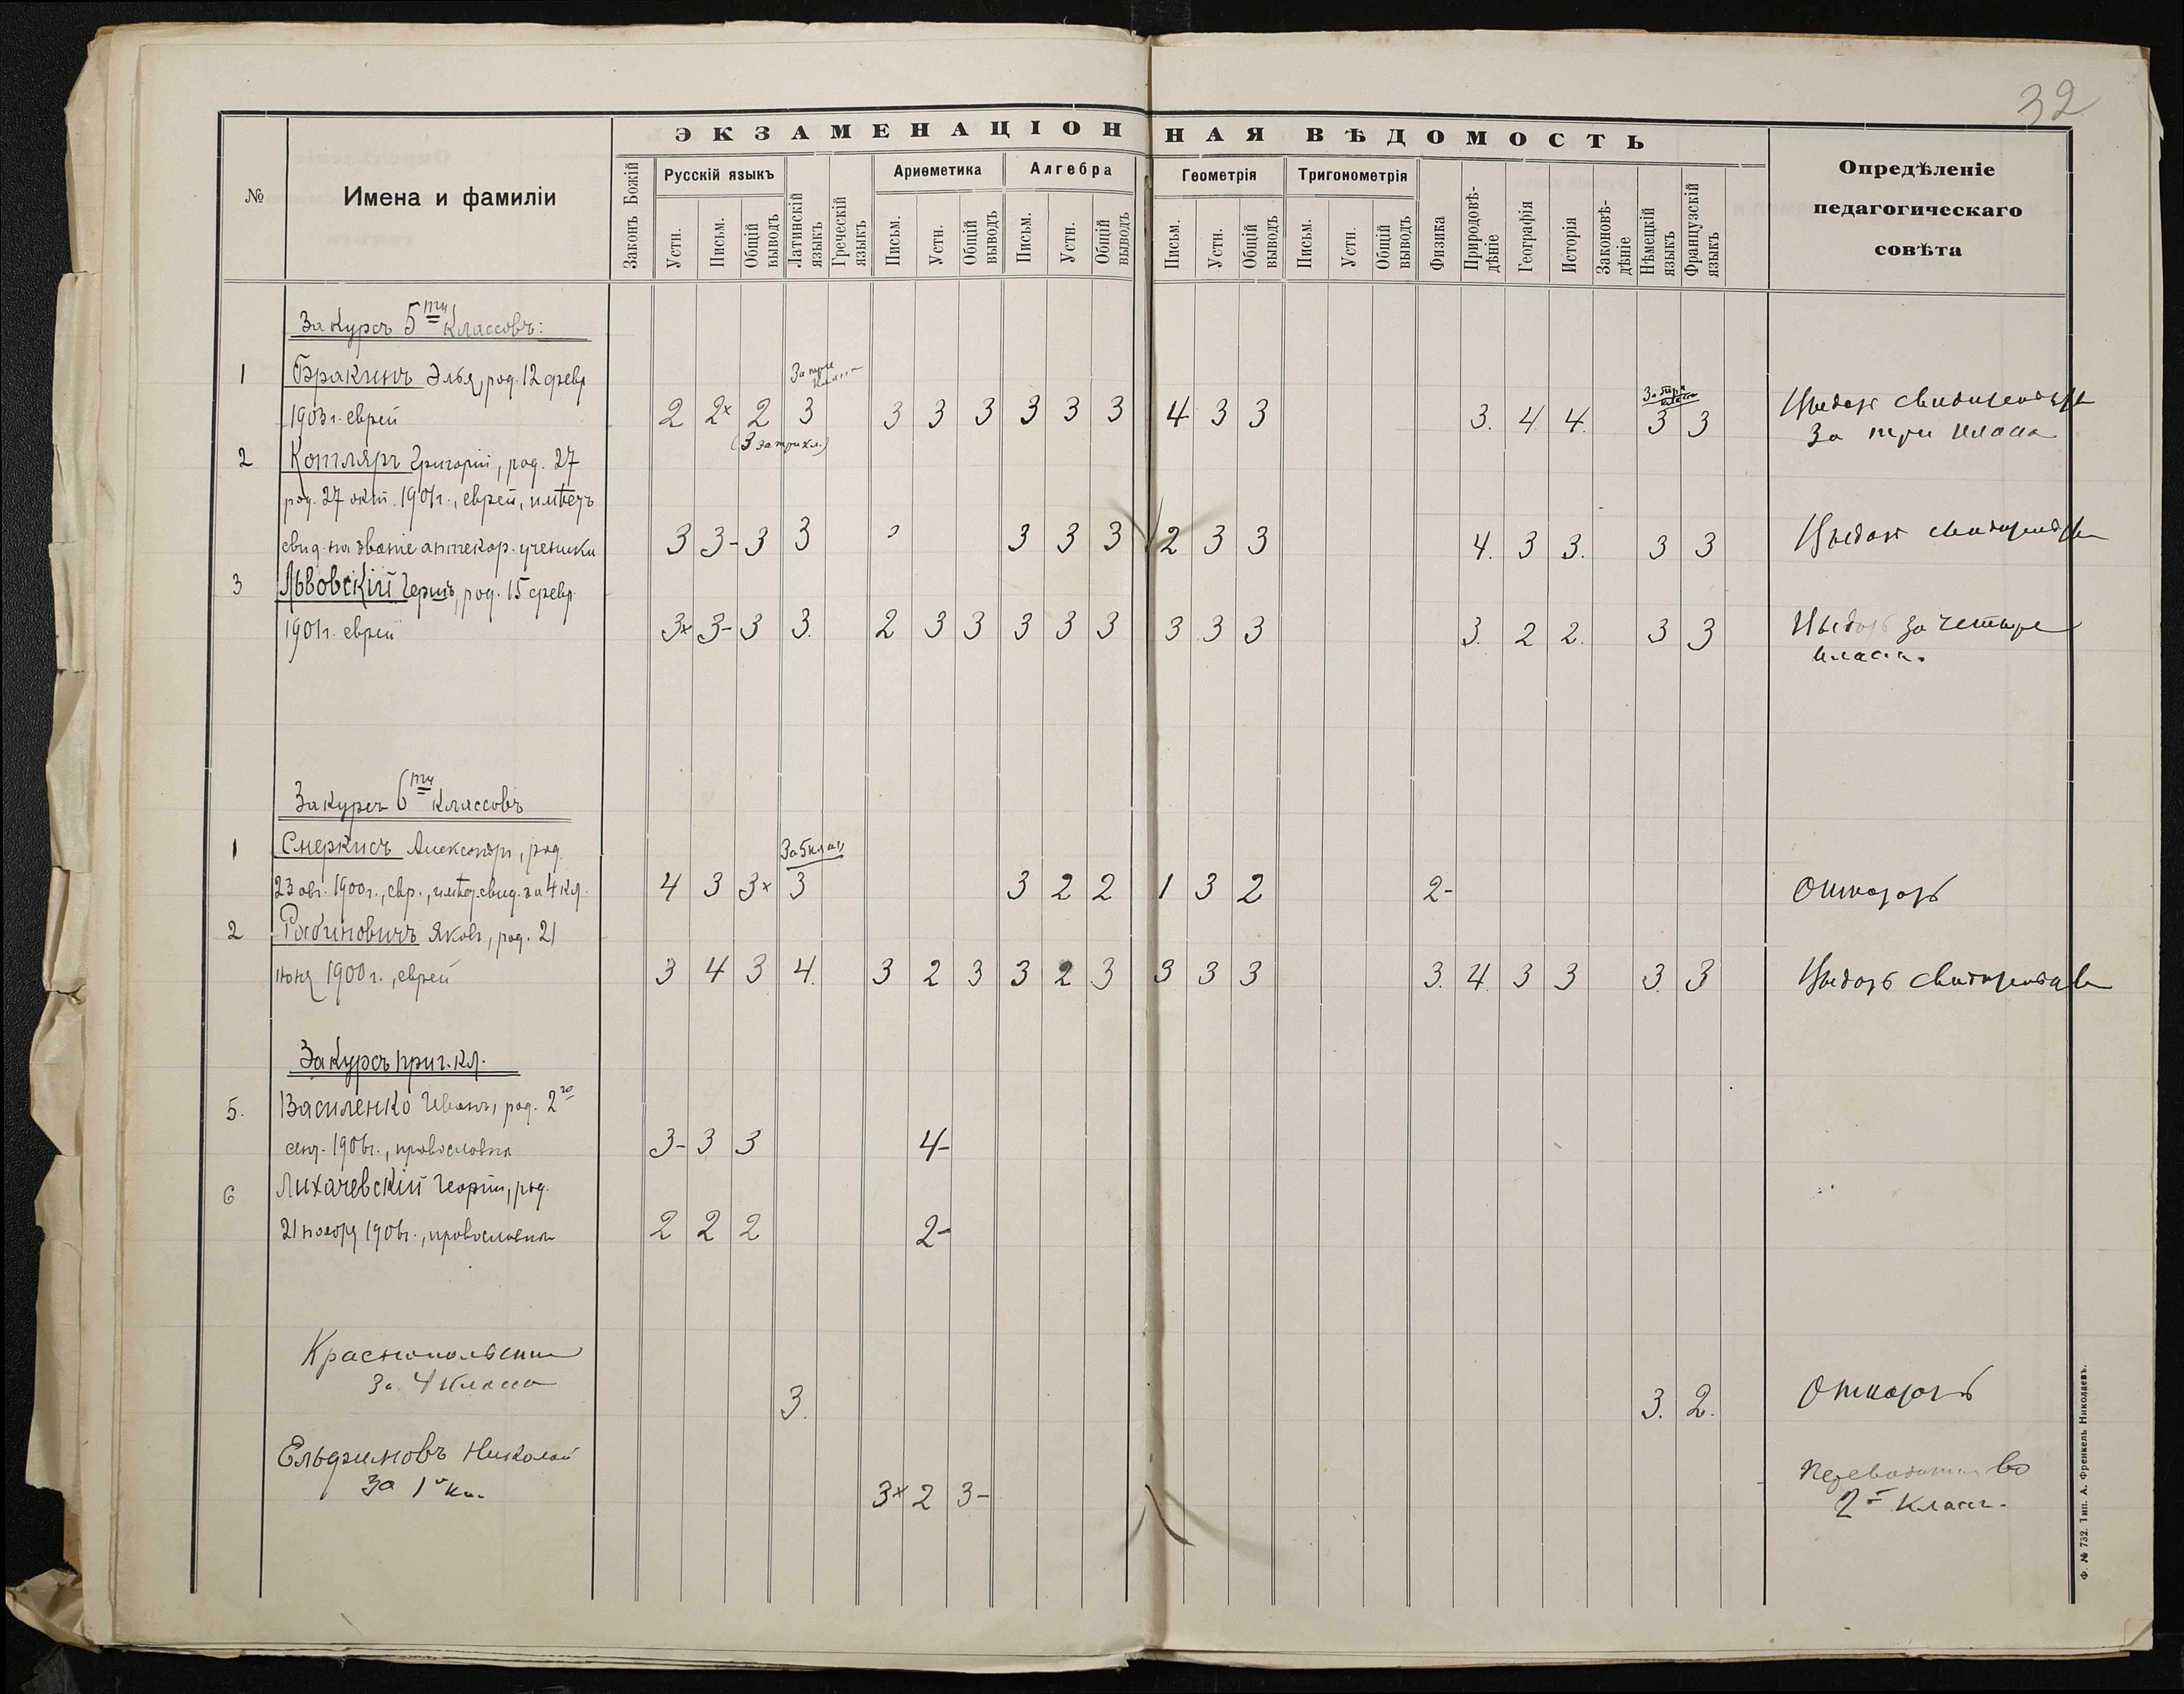 32
ЭКЗАМЕНАЦІОННАЯ ВѢДОМОСТЬ
№
Имена и фамиліи
Законъ Божій
Русскій языкъ
Устн.
Письм.
Общій выводъ
Латинскій языкъ
Греческій языкъ
Ариѳметика
Письм.
Устн.
Общій выводъ
Алгебра
Письм.
Устн.
Общій выводъ
Геометрія
Письм.
Устн.
Общій выводъ
Тригонометрія
Письм.
Устн.
Общій выводъ
Физика
Природовѣ-дѣніе
Географія
Исторія
Законовѣ-дѣніе
Нѣмецкій языкъ
Французскій языкъ
Опредѣленіе
педагогическаго
совѣта
За курсъ 5ти классовъ:
1 Бракинъ Элья, род. 12 февр За три За три
1903 г. еврей 2 2× 2 3 3 3 3 3 3 3 4 3 3 3. 4 4. 3 3 свидетельство
(3 за три кл.) За три класса
2 Котляръ Григорій, род. 27
род. 27 окт. 1901 г., еврей, имѣетъ
свид. на званіе аптекар. ученика 3 3- 3 3 3 3 3 3 2 3 3 4. 3 3. 3 3
3 Львовскій Герцъ, род. 15 февр.
1901 г. еврей 3× 3- 3 3. 2 3 3 3 3 3 3 3 3 3. 2 2. 3 3 за четыре
класса.
За курсъ 6ти классовъ
1 Смеркисъ Александръ, род. За 5 клас
23 авг. 1900 г., евр., имѣет. свид. за 4 кл. 4 3 3× 3 3 2 2 1 3 2 2- Отказать
2 Рабиновичъ Яковъ, род. 21
іюня 1900 г., еврей 3 4 3 4. 3 2 3 3 2 3 3 3 3 3. 4. 3 3 3. 3
За курсъ приг. кл.
5. Василенко Иванъ, род. 2го
сент. 1906 г., православн 3- 3 3 4-
6 Лихачевскій Георгій, род.
21 ноября 1906 г., православн 2 2 2 2-
Краснопольскій
За 4 класса 3. 3. 2. Отказать
Ельдиновъ Николай
За 1й кл. 3× 2 3- во
2й класс.
Ф. № 732. Тип. А. Френкель Николаевъ.